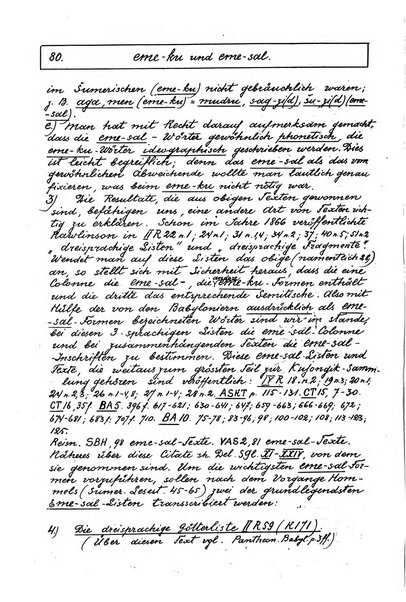 80. eme-ku und eme-sal.
im Sumerischen (eme-ku) nicht gebräuchlich waren;
z. B. aga, men (eme-ku) = mudru, sag-zi(d), šu-zi(d) (eme-
sal).
c) Man hat mit Recht darauf aufmerksam gemacht,
dass die eme-sal-Wörter gewöhnlich phonetisch, die
eme-ku-Wörter ideographisch geschrieben werden. Dies
ist leicht begreiflich; denn das eme-sal als das vom
gewöhnlichen Abweichende wollte man lautlich genau
fixieren, was beim eme-ku nicht nötig war.
3) Die Resultate, die aus obigen Texten gewonnen
sind, befähigen uns, eine andere Art von Texten rich-
tig zu erklären. Schon im Jahre 1866 veröffentlichte
Rawlinson im II R 22 n.1, 24 n.1; 31 n.4, 34 n.2; 37; 40 n.5; 51 n.2
"dreisprachige Listen" und "dreisprachige Fragmente".
Wendet man auf diese Listen das obige (namentlich 2b)
an, so stellt sich mit Sicherheit heraus, dass die eine
Colonne die eme-sal-, die andere eme-ku-Formen enthält
und die dritte das entsprechende Semitische. Also mit
Hilfe der von den Babyloniern ausdrücklich als eme-
sal-Formen bezeichneten Wörter sind wir im stande,
bei diesen 3-sprachigen Listen die eme-sal-Colonne
und bei zusammenhängenden Texten die eme-sal-
Inschriften zu bestimmen. Diese eme-sal-Listen und
Texte, die weitaus zum grössten Teil zur Kujungik-Samm-
lung gehören sind veröffentlicht: IV R 18 n.2; 19 n.3; 20 n.1;
24 n.2,3, 26 n.1-4,8; 27 n.2; 28 n.2, ASKT p. 115-131. CT 15, 7-30.
CT 16, 35 f. BA 5. 396 f. 617-621; 630-641; 647; 659-663; 666-669; 672;
674-681; 683 f. 707 f. 710. BA 10. 75-78; 83-96, 98; 100-102; 108; 113-123;
125.
Reisn. SBH, 98 eme-sal-Texte. VAS 2, 81 eme-sal-Texte.
Näheres über diese Citate sh. Del. SGl. XI-XXIV, von dem
sie genommen sind. Um die wichtigsten eme-sal-For-
men vorzuführen, sollen nach dem Vorgange Hom-
mels (Sumer. Lesest. 45-65) zwei der grundlegendsten
Eme-sal-Listen transcribiert werden:
4) Die dreisprachige Götterliste II R 59 (K 171)
(Über diesen Text vgl. Pantheon Babyl. p. 3 ff.)